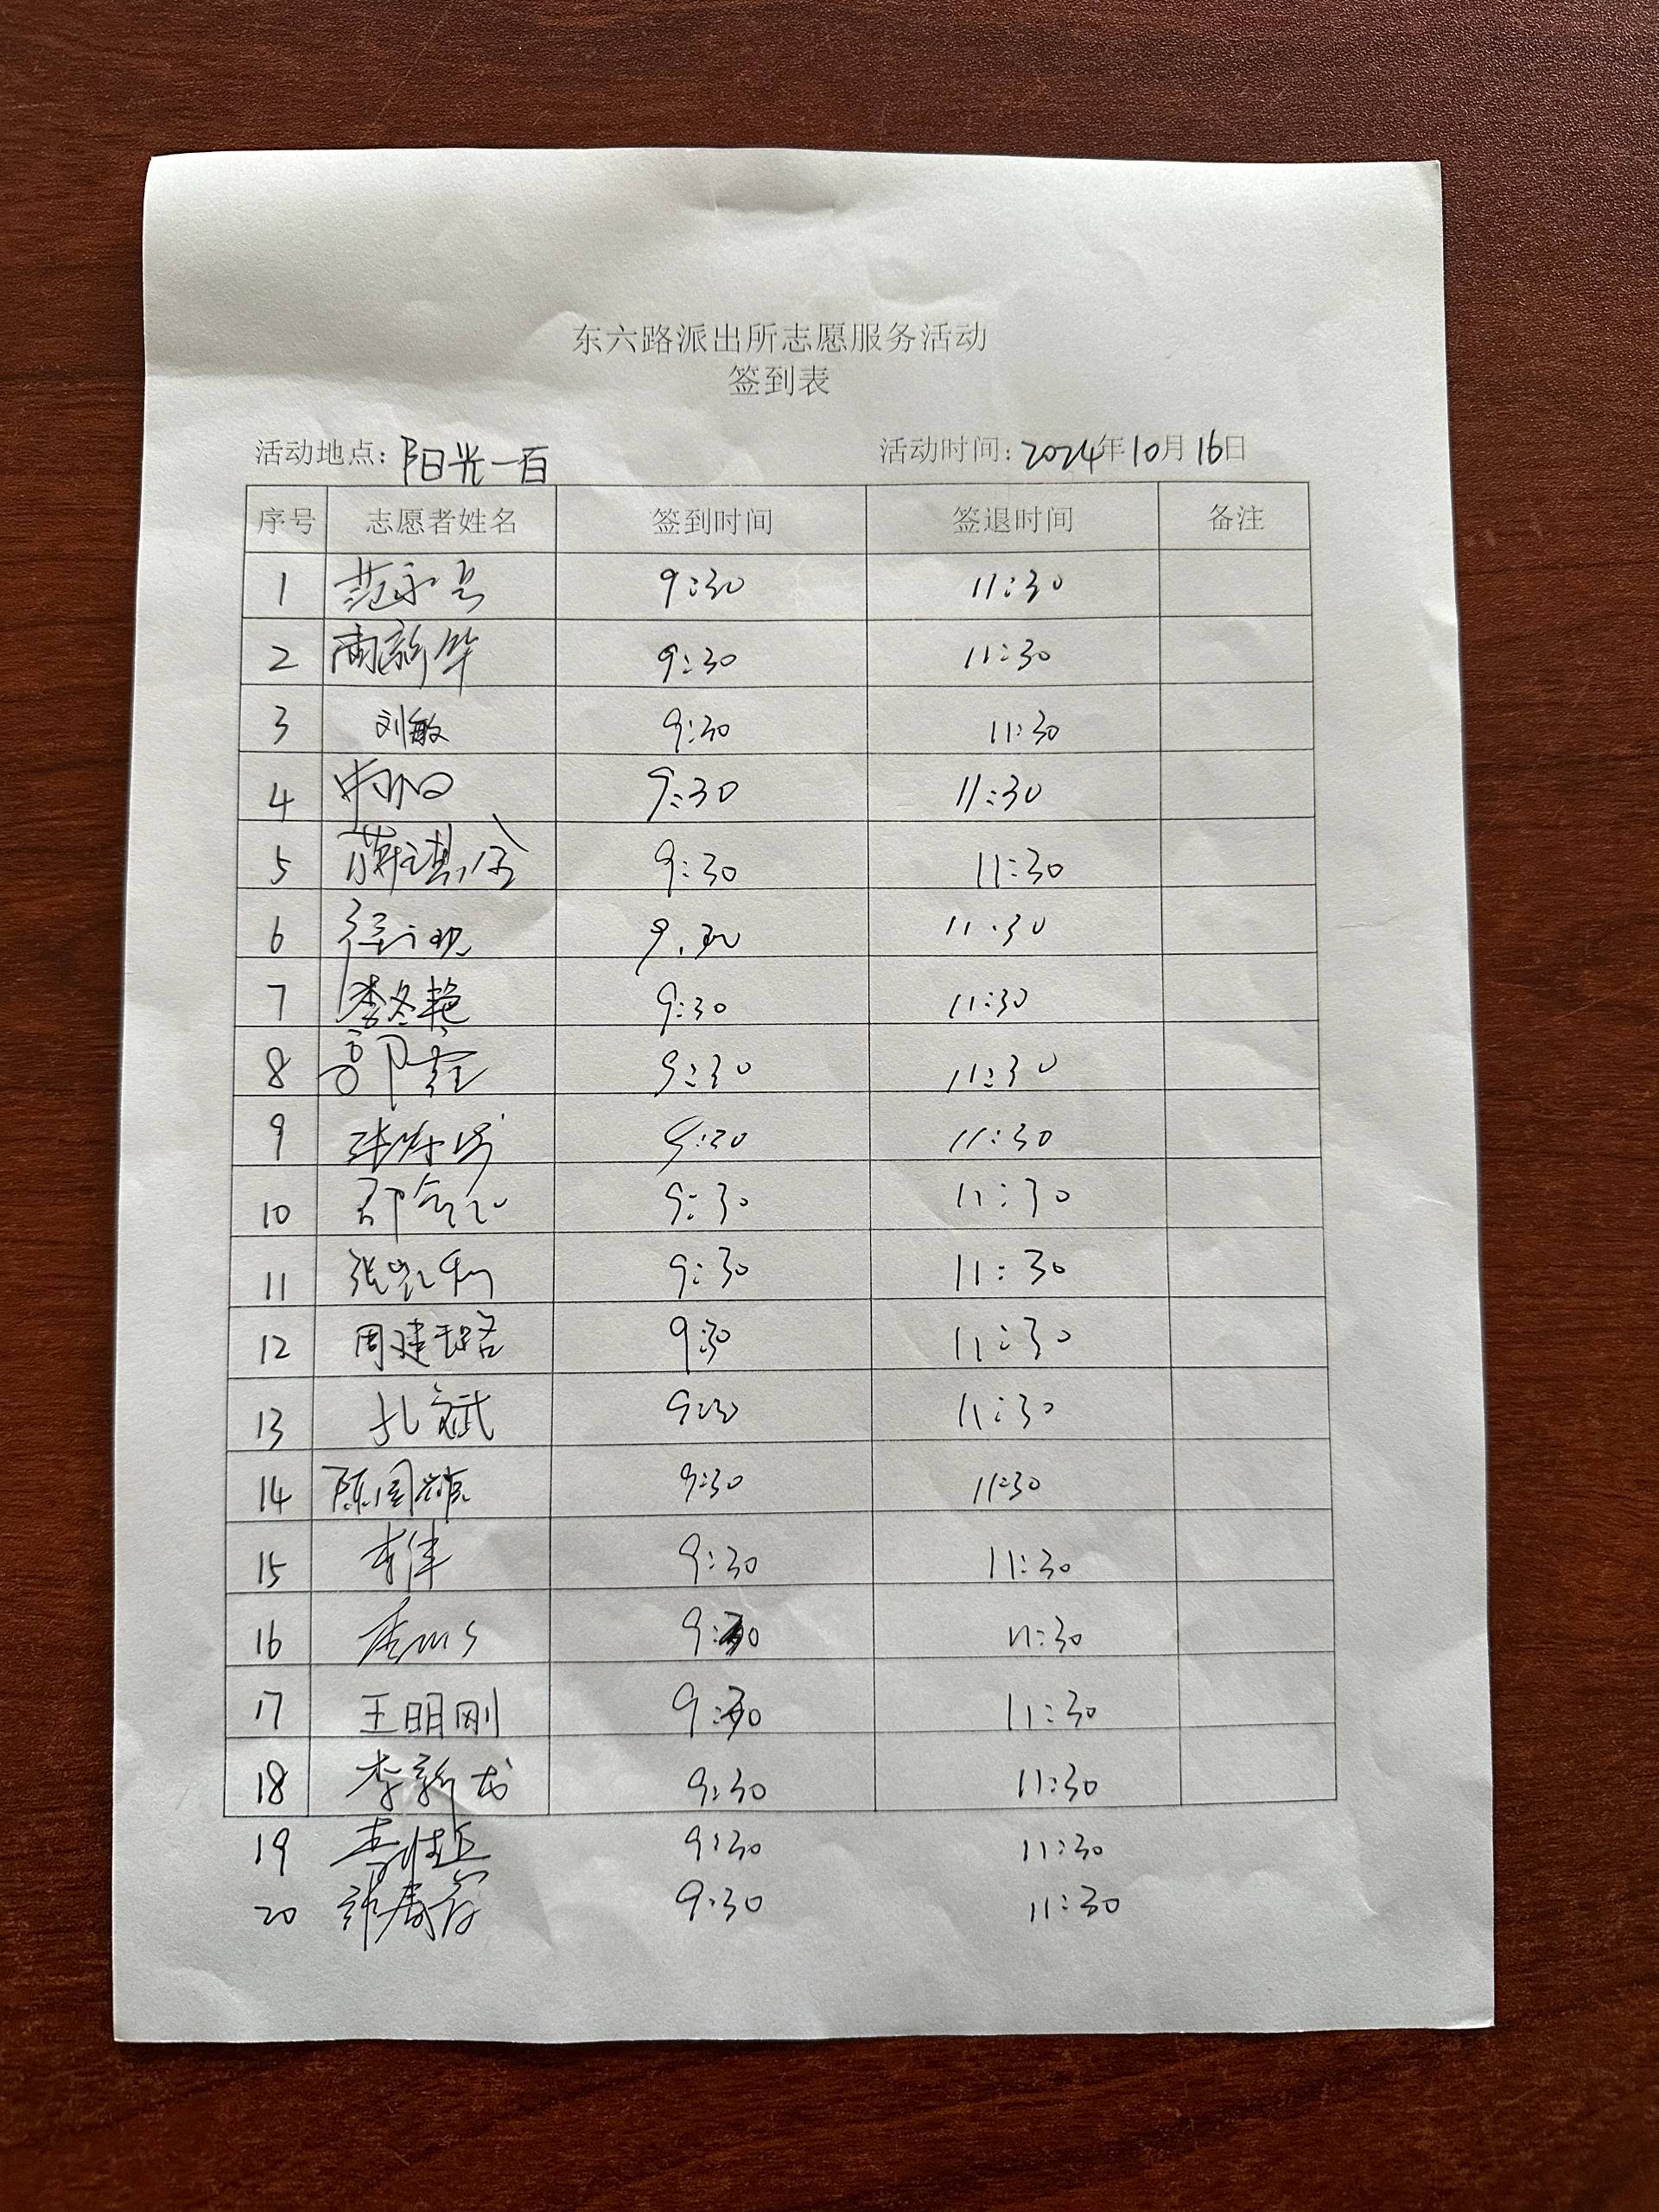 东六路派出所志愿服务活动
签到表
活动地点: 阳光一百 活动时间: 2024年10月16日
序号 志愿者姓名 签到时间 签退时间 备注
1 9:30 11:30
2 9:30 11:30
3 刘敏 9:30 11:30
4 9:30 11:30
5 9:30 11:30
6 9.30 11.30
7 李冬艳 9:30 11:30
8 9:30 11:30
9 9:30 11:30
10 9:30 11:30
11 9:30 11:30
12 周建璐 9:30 11:30
13 孔斌 9:30 11:30
14 9:30 11:30
15 李伟 9:30 11:30
16 9:30 11:30
17 王明刚 9:30 11:30
18 李新书 9:30 11:30
19 9:30 11:30
20 9:30 11:30